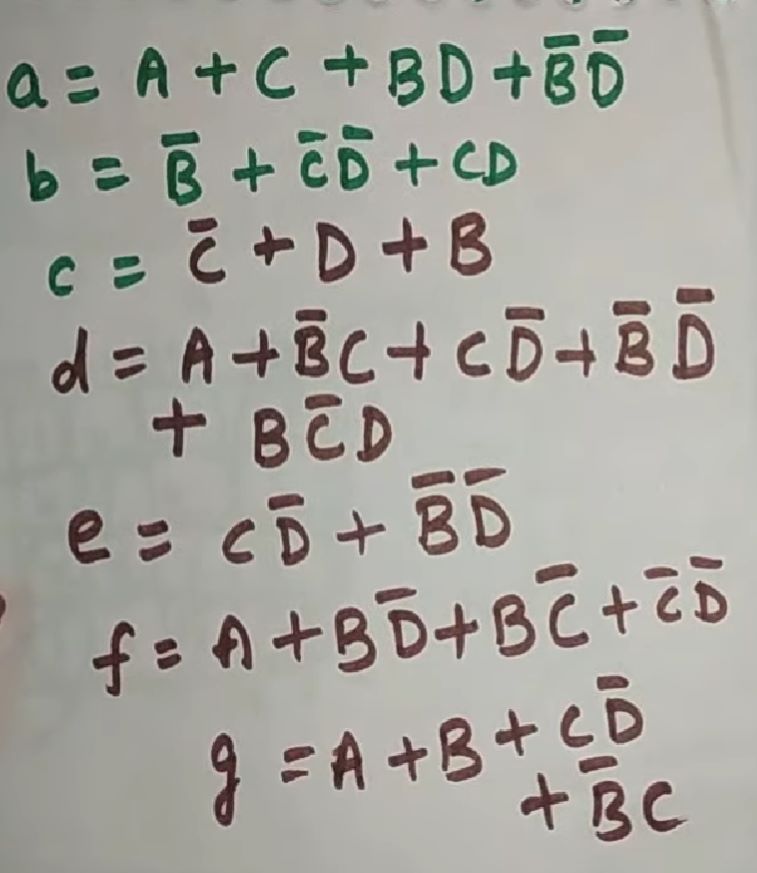 a = A + C + BD + B̅D̅
b = B̅ + C̅D̅ + CD
c = C̅ + D + B
d = A + B̅C + CD̅ + B̅D̅
+ BC̅D
e = CD̅ + B̅D̅
f = A + BD̅ + BC̅ + C̅D̅
g = A + B + CD̅
+ B̅C